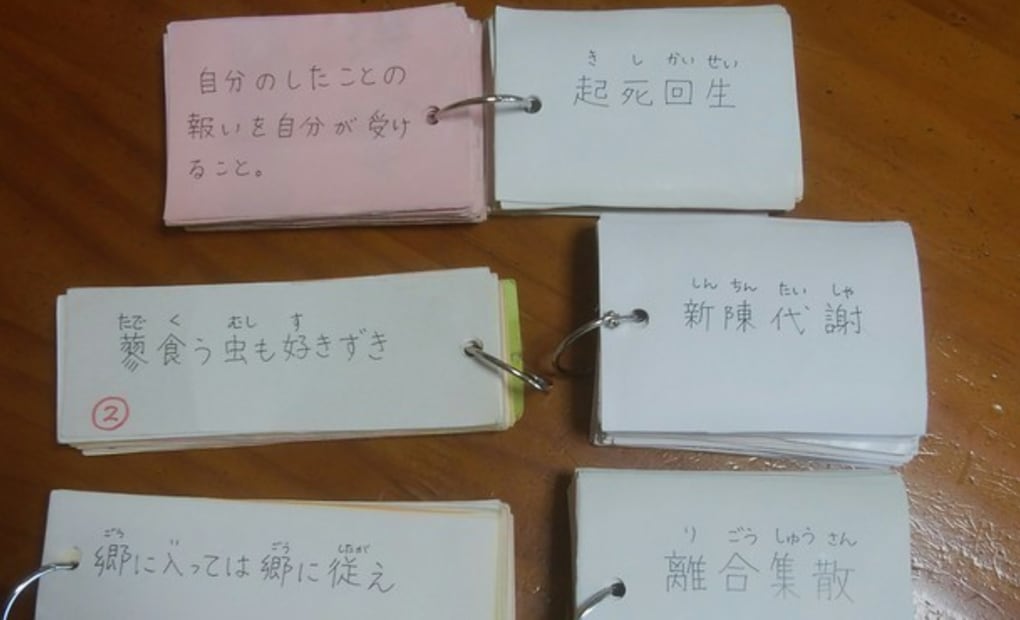 自分のしたことの
報いを自分が受け
ること。
き し かい せい
起死回生
たで く むし す
蓼食う虫も好きずき
②
しん ちん たい しゃ
新陳代謝
ごう い ごう したが
郷に入っては郷に従え
り ごう しゅう さん
離合集散